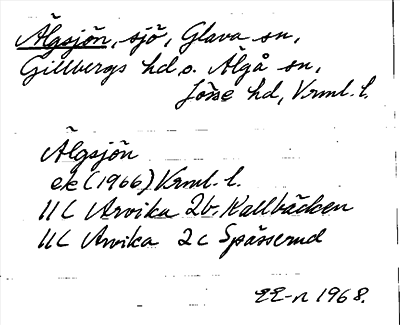 Älgsjön, sjö, Glava sn,
Gillbergs hd o. Älgå sn,
Jösse hd, Vrml. l.
Älgsjön
ek (1966) Vrml. l.
11C Arvika 2b, Kallbäcken
11C Arvika 2c Spässerud
EE-n 1968.